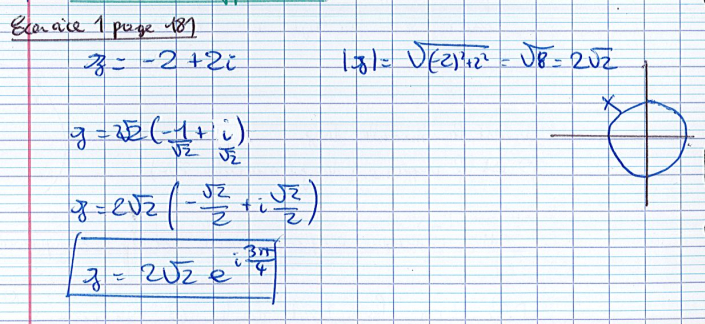 Exercice 1 page 181
z = -2 + 2i   |z| = √((-2)²+2²) = √8 = 2√2
z = 2√2 (-1/√2 + i/√2)
z = 2√2 (-√2/2 + i √2/2)
z = 2√2 e^(i 3π/4)